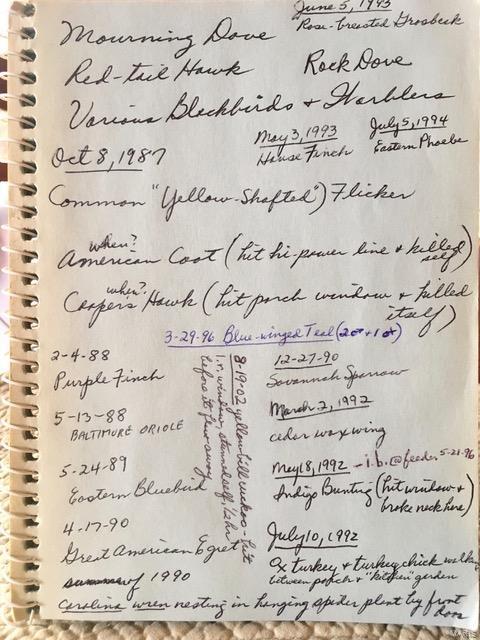 June 5, 1993
Rose-breasted Grosbeak
Mourning Dove
Red-tail Hawk
Rock Dove
Various Blackbirds & Warblers
May 3, 1993
House Finch
July 5, 1994
Eastern Phoebe
Oct 8, 1987
Common "Yellow-Shafted") Flicker
when?
American Coot (hit hi-power line & killed
self)
when?
Cooper's Hawk (hit porch window & killed
itself)
3-29-96 Blue-winged Teal (2♂ + 1♀)
2-4-88
Purple Finch
5-13-88
BALTIMORE ORIOLE
5-24-89
Eastern Bluebird
4-17-90
Great American Egret
summer of 1990
Carolina wren nesting in hanging spider plant by front
door
8-19-02 yellow-bill cuckoo - hit
l.r. window, stunned self 1/2 hr
before it flew away
12-27-90
Savannah Sparrow
March 2, 1992
cedar waxwing
May 18, 1992 - i.b. @ feeder 5-21-96
Indigo Bunting (hit window &
broke neck here)
July 10, 1992
turkey & turkey chick walking
between porch & "kitchen" garden